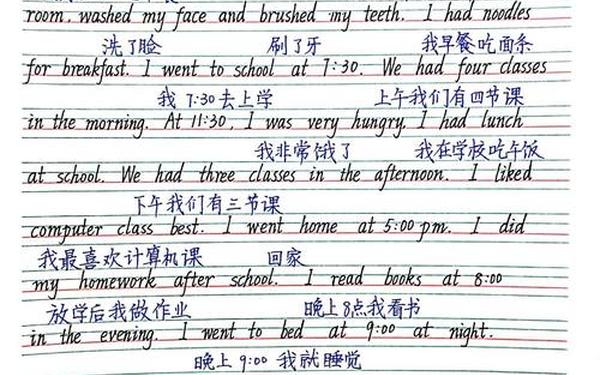 room, washed my face and brushed my teeth. I had noodles
洗了脸 刷了牙 我早餐吃面条
for breakfast. I went to school at 7:30. We had four classes
我 7:30 去上学 上午我们有四节课
in the morning. At 11:30, I was very hungry. I had lunch
我非常饿了 我在学校吃午饭
at school. We had three classes in the afternoon. I liked
下午我们有三节课
computer class best. I went home at 5:00 pm. I did
我最喜欢计算机课 回家
my homework after school. I read books at 8:00
放学后我做作业 晚上8点我看书
in the evening. I went to bed at 9:00 at night.
晚上 9:00 我就睡觉